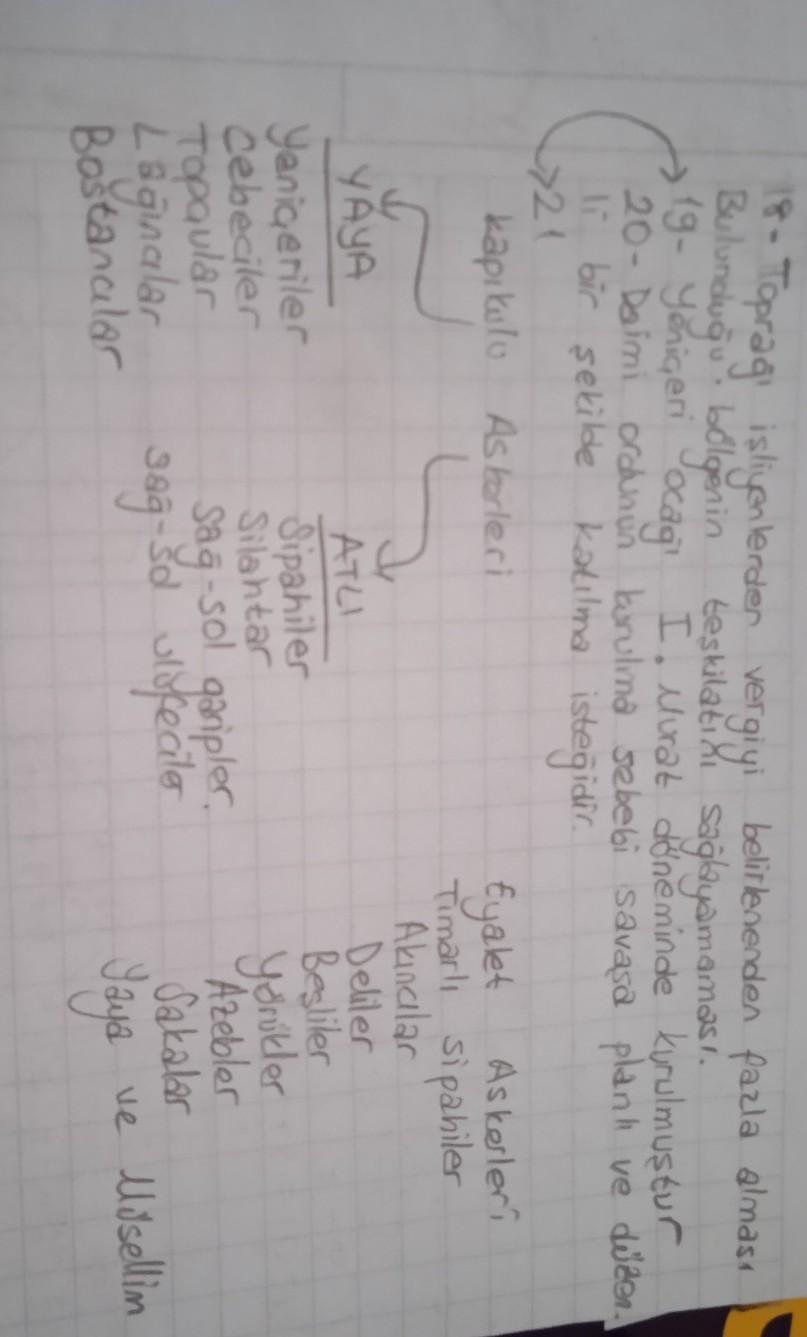 18- Toprağı işliyenlerden vergiyi belirlenenden fazla alması
Bulunduğu bölgenin teşkilatını sağlayamaması.
19- Yeniçeri ocağı I. Murat döneminde kurulmuştur
20- Daimi ordunun kurulma sebebi savaşa planlı ve düzen-
li bir şekilde katılma isteğidir.
21
Kapıkulu Askerleri
YAYA
Yeniçeriler
Cebeciler
Topçular
Lağımcılar
Bostancılar
ATLI
Sipahiler
Silahtar
Sağ-sol garipler.
sağ-sol ulüfeciler
Eyalet Askerleri
Tımarlı sipahiler
Akıncılar
Deliler
Beşliler
Yörükler
Azebler
Sakalar
Yaya ve Müsellim